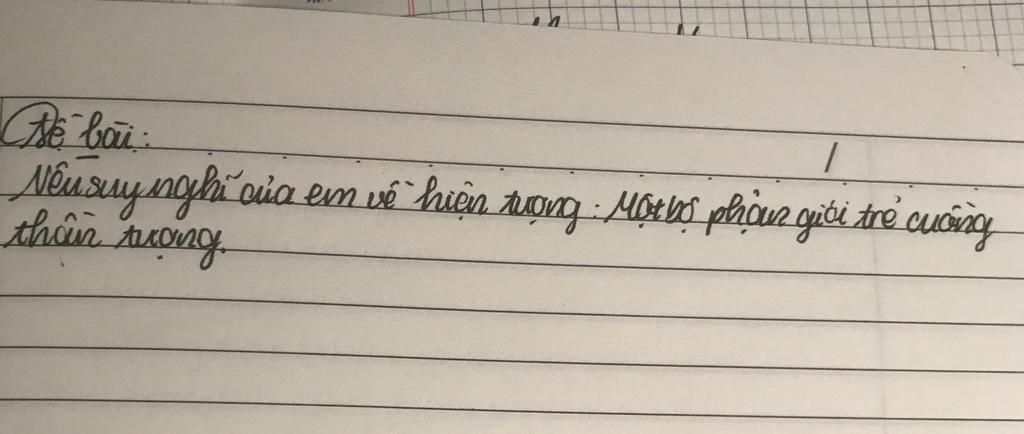 Đề bài:
Nêu suy nghĩ của em về hiện tượng: Một bộ phận giới trẻ cuồng
thần tượng.